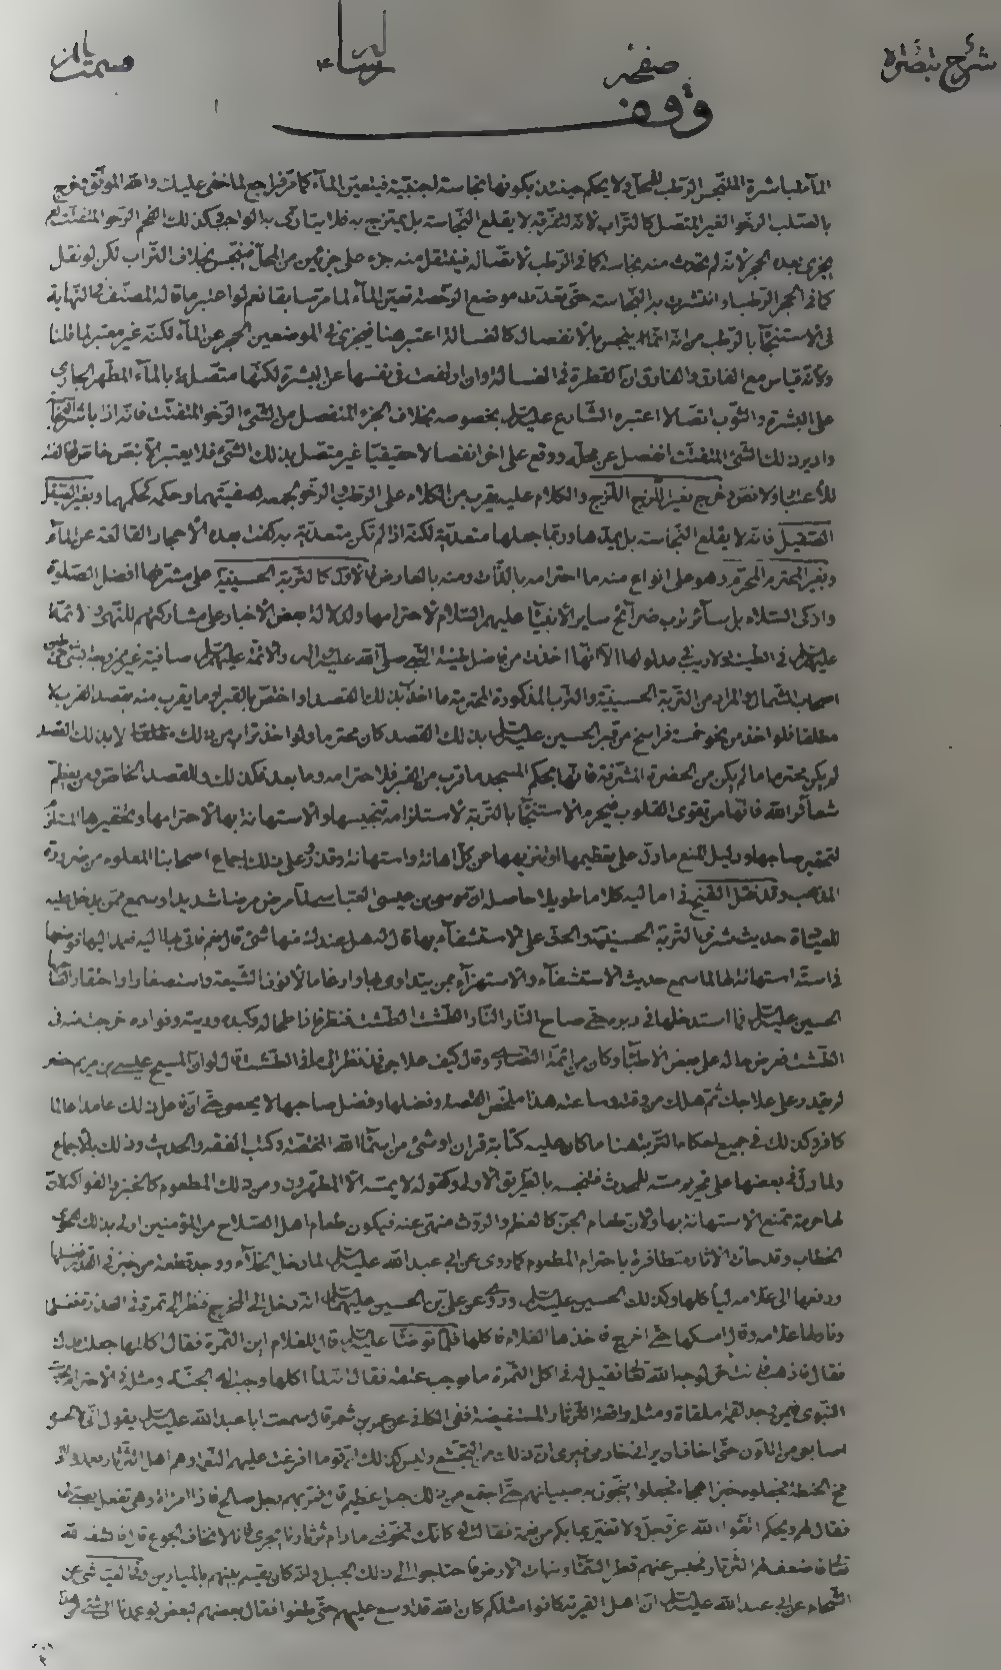 شرح تبصرة
صفحه
وقف
الماء لمباشرة المتنجس الرطب للمحل ولا يحكم حينئذ بكونها نجاسة اجنبية فيتعين الماء كما مر فراجع لما خفى عليك والله الموفق وخرج
بالصلب الرخو الغير المتصل كالتراب لانه لتفرقه لا يقلع النجاسة بل يمتزج به فلا يتأدى به الواجب وكذلك الفحم الرخو المتفتت نعم
يجزى بعده الحجر لانه لم يحدث منه نجاسة كما فى الرطب لاتصاله فينتقل منه جزء على جزئين من المحل فينجس بخلاف التراب لكن لو نقل
كما فى الحجر الرطب او انتشرت به النجاسة حتى تعدت موضع الرخصة تعين الماء لما مر سابقا نعم لو اعتبر ما قاله المصنف فى النهاية
فى الاستنجاء بالرطب من انه انما ينجس بالانفصال كالغسالة اعتبر هنا فيجزى فى الموضعين الحجر عن الماء لكنه غير معتبر لما قلنا
ولانه قياس مع الفارق والفارق ان القطرة فى الغسالة وان ارتفعت فى نفسها عن البشرة لكنها متصلة بالماء المطهر الجارى
على البشرة والثوب اتصالا اعتبره الشارع عليه السلم بخصوصه بخلاف الجزء المنفصل من الشئ الرخو المتفتت فانه اذا باشر
وادير ذلك الشئ المتفتت انفصل عن محله ووقع على اخر انفصالا حقيقيا غير متصل بذلك الشئ فلا يعتبر الا بنص خاص
للاعتبار ولا نص وخرج بغير اللزج اللزج والكلام عليه يقرب من الكلام على الرطب والرخو لجمعه لصفتيهما وحكمه كحكمهما وبغير الصقيل
الصقيل فانه لا يقلع النجاسة بل يمدها وربما جعلها متعدية لكنه اذا لم تكن متعدية به كفت بعده الاحجار القالعة عن الماء
وبغير المحترم المحترم وهو على انواع منه ما احترامه بالذات ومنه بالعارض فالاول كالتربة الحسينية على مشرفها افضل الصلوة
وازكى السلام بل سائر ترب ضرائح ساير الانبياء عليهم السلام لاحترامها ولدلالة بعض الاخبار على مشاركتهم
عليهم السلم فى الطينة ولا ريب فى مدلولها الا انها اخذت من فاضل طينة النبى صلى الله عليه واله والائمة عليهم السلم صافية غير ممزوجة
اصحاب الشمال والمراد من التربة الحسينية والترب المذكورة المحترمة ما اخذ بذلك القصد او اختص بالقبر او ما يقرب منه بقصد القرب لا
مطلقا فلو اخذ من نحو خمسة فراسخ من قبر الحسين عليه السلم بذلك القصد كان محترما ولو اخذ تراب من ذلك مطلقا لا بذلك القصد
لم يكن محترما ما لم يكن من الحضرة المشرفة فانها بحكم المسجد وما قرب من القبر فلاحترامه وما بعد فكذلك وللقصد الخاص ومن يعظم
شعائر الله فانها من تقوى القلوب فيحرم الاستنجاء بالتربة لاستلزامه تنجيسها والاستهانة بها لاحترامها وتحقيرها المستلزم
لتحقير صاحبها ودليل المنع ما دل على تعظيمها او تنزيهها عن كل اهانة واستهانة وقد دل على ذلك اجماع اصحابنا المعلوم من ضرورة
المذهب وقد نقل الشيخ فى اماليه كلاما طويلا حاصله ان موسى بن عيسى العباسى مرض مرضا شديدا وسمع ممن يدخل عليه
للعيادة حديث شرف التربة الحسينية والحث على الاستشفاء بها قال له هل عندك منها شئ قال نعم فاتى بها اليه فعمد اليها فوضعها
فى استه استهانة لها لما سمع حديث الاستشفاء والاستهزاء بمن يتداوى بها وارغاما لانوف الشيعة واستصغارا واحتقارا
الحسين عليه السلم فما استدخلها فى دبره حتى صاح النار النار الطشت الطشت فنظر فاذا طحاله وكبده وريته وفؤاده خرجت منه فى
الطشت فعرض حاله على بعض الاطباء وكان من ائمة النصارى وقال كيف علاجى فلما نظر الى ما فى الطشت قال لو ان المسيح عيسى بن مريم حضر
لم يقدر على علاجك ثم هلك من وقته وساعته هذا ملخص القصة وفضلها وفضل صاحبها لا يحصى حتى ان فاعل ذلك عامدا عالما
كافر وكذلك فى جميع احكام التربة هنا ما كان عليه كتابة قران او شئ من اسماء الله المختصة وكتب الفقه والحديث وذلك بالاجماع
ولما دل فى بعضها على تحريم مسه للمحدث فتنجيسه بالطريق الاولى وكقوله لا يمسه الا المطهرون ومن ذلك المطعوم كالخبز والفواكه لان
لها حرمة تمنع الاستهانة بها ولان طعام الجن كالعظم والروث منهى عنه فيكون طعام اهل الصلاح من المؤمنين اولى بذلك
الخطاب وقد جاءت الاثار متظافرة باحترام المطعوم كما روى عن ابى عبد الله عليه السلم لما دخل الخلاء ووجد قطعة من خبز فى القذر فغسلها
ودفعها الى غلامه ليأكلها وكذلك الحسين عليه السلم وروى عن على بن الحسين عليهما السلم انه دخل الى المخرج فنظر الى تمرة فى العذرة فغسلها
وناولها غلامه وقال امسكها حتى اخرج فاخذها الغلام فاكلها فلما توضأ عليه السلم قال للغلام اين التمرة فقال اكلتها جعلت فداك
فقال اذهب فانت حر لوجه الله تعالى فقيل له فى اكل التمرة ما يوجب عتقه فقال انه لما اكلها وجبت له الجنة ومثله فى الاحترام
النبوى فيمن وجد لقمة ملقاة ومثل واقعة الثرثار المستفيضة ففى الكافى عن عمر بن شمر قال سمعت ابا عبد الله عليه السلم يقول انى لالحس
اصابعى من المادوم حتى اخاف ان يرانى خادمى فيرى ان ذلك من التجشع وليس كذلك ان قوما افرغت عليهم النعمة وهم اهل الثرثار فعمدوا الى
مخ الحنطة فجعلوه خبزا هجاء فجعلوا ينجون به صبيانهم حتى اجتمع من ذلك جبل عظيم قال فمر بهم رجل صالح فاذا امراة وهى تفعل
فقال لهم ويحكم اتقوا الله عز وجل ولا تغيروا ما بكم من نعمة فقالت له كانك تخوفنا بالجوع اما ما دام ثرثارنا يجرى فانا لا نخاف الجوع قال فاسف الله
تعالى فاضعف لهم الثرثار وحبس عنهم قطر السماء ونبات الارض قال فاحتاجوا الى ذلك الجبل وانه كان يقسم بينهم بالميازين
الشحام عن ابى عبد الله عليه السلم ان اهل القرية كانوا مثلكم كان الله قد اوسع عليهم حتى طغوا فقال بعضهم لبعض لو عمدنا الى شئ